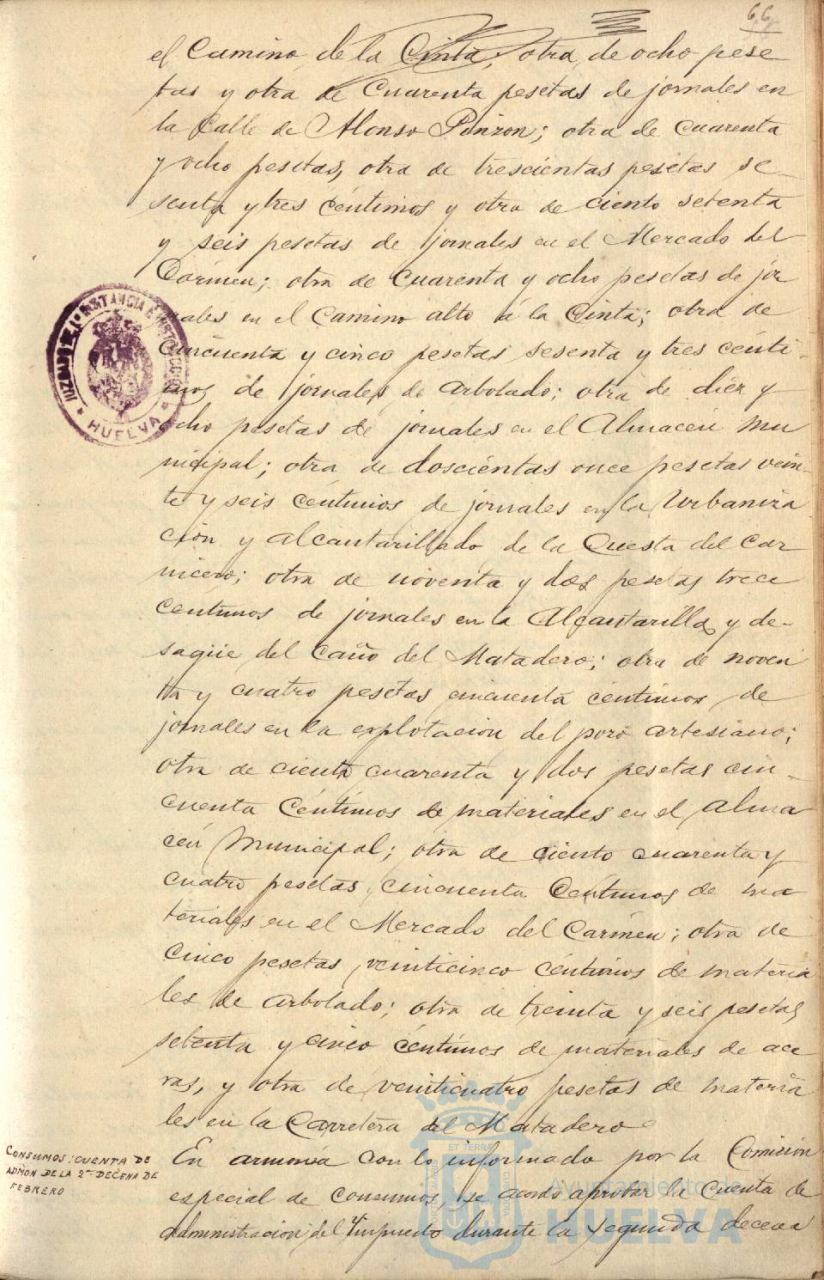 66
el Camino de la Cinta, otra de ocho pese
tas y otra de cuarenta pesetas de jornales en
la Calle de Alonso Pinzon; otra de cuarenta
y ocho pesetas, otra de trescientas pesetas se-
senta y tres céntimos y otra de ciento setenta
y seis pesetas de jornales en el Mercado del
Cármen; otra de cuarenta y ocho pesetas de jor
nales en el Camino alto á la Cinta; otra de
cincuenta y cinco pesetas sesenta y tres cénti-
mos de jornales de arbolado; otra de diez y
ocho pesetas de jornales en el Almacén mu
nicipal; otra de doscientas once pesetas vein-
te y seis céntimos de jornales en la Urbaniza
ción y alcantarillado de la Questa del Car
nicero; otra de noventa y dos pesetas trece
centimos de jornales en la Alcantarilla y de-
sagüe del caño del Matadero; otra de noven
ta y cuatro pesetas cincuenta céntimos de
jornales en la explotacion del pozo artesiano;
otra de ciento cuarenta y dos pesetas cin-
cuenta céntimos de materiales en el alma
cén Municipal; otra de ciento cuarenta y
cuatro pesetas, cincuenta céntimos de ma
teriales en el Mercado del Carmen; otra de
cinco pesetas, veinticinco céntimos de materia
les de arbolado; otra de treinta y seis pesetas,
setenta y cinco céntimos de materiales de ace
ras, y otra de veinticuatro pesetas de materia
les en la Carretera del Matadero
En armonía con lo informado por la Comisión
especial de consumos, se acordo aprobar la cuenta de
administracion del impuesto durante la segunda decena
CONSUMOS: CUENTA DE
ADMON DE LA 2ª DECENA DE
FEBRERO
JUZGADO DE 1ª INSTANCIA E INSTRUCCION
HUELVA
Ayuntamiento de
HUELVA